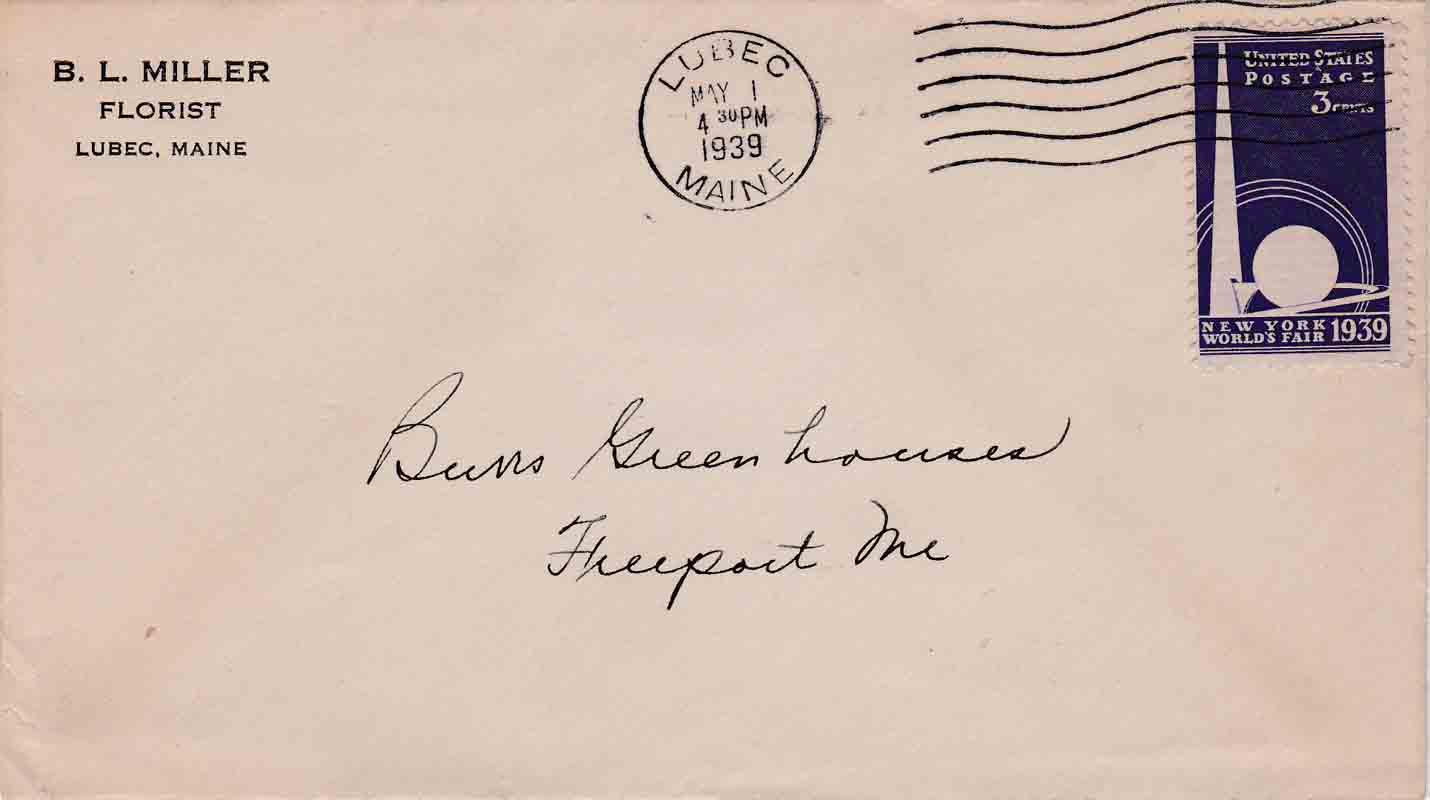 B. L. MILLER
FLORIST
LUBEC, MAINE
LUBEC
MAY 1
4 30 PM
1939
MAINE
UNITED STATES
POSTAGE
3 CENTS
NEW YORK
WORLD'S FAIR 1939
Burrs Green houses
Freeport Me